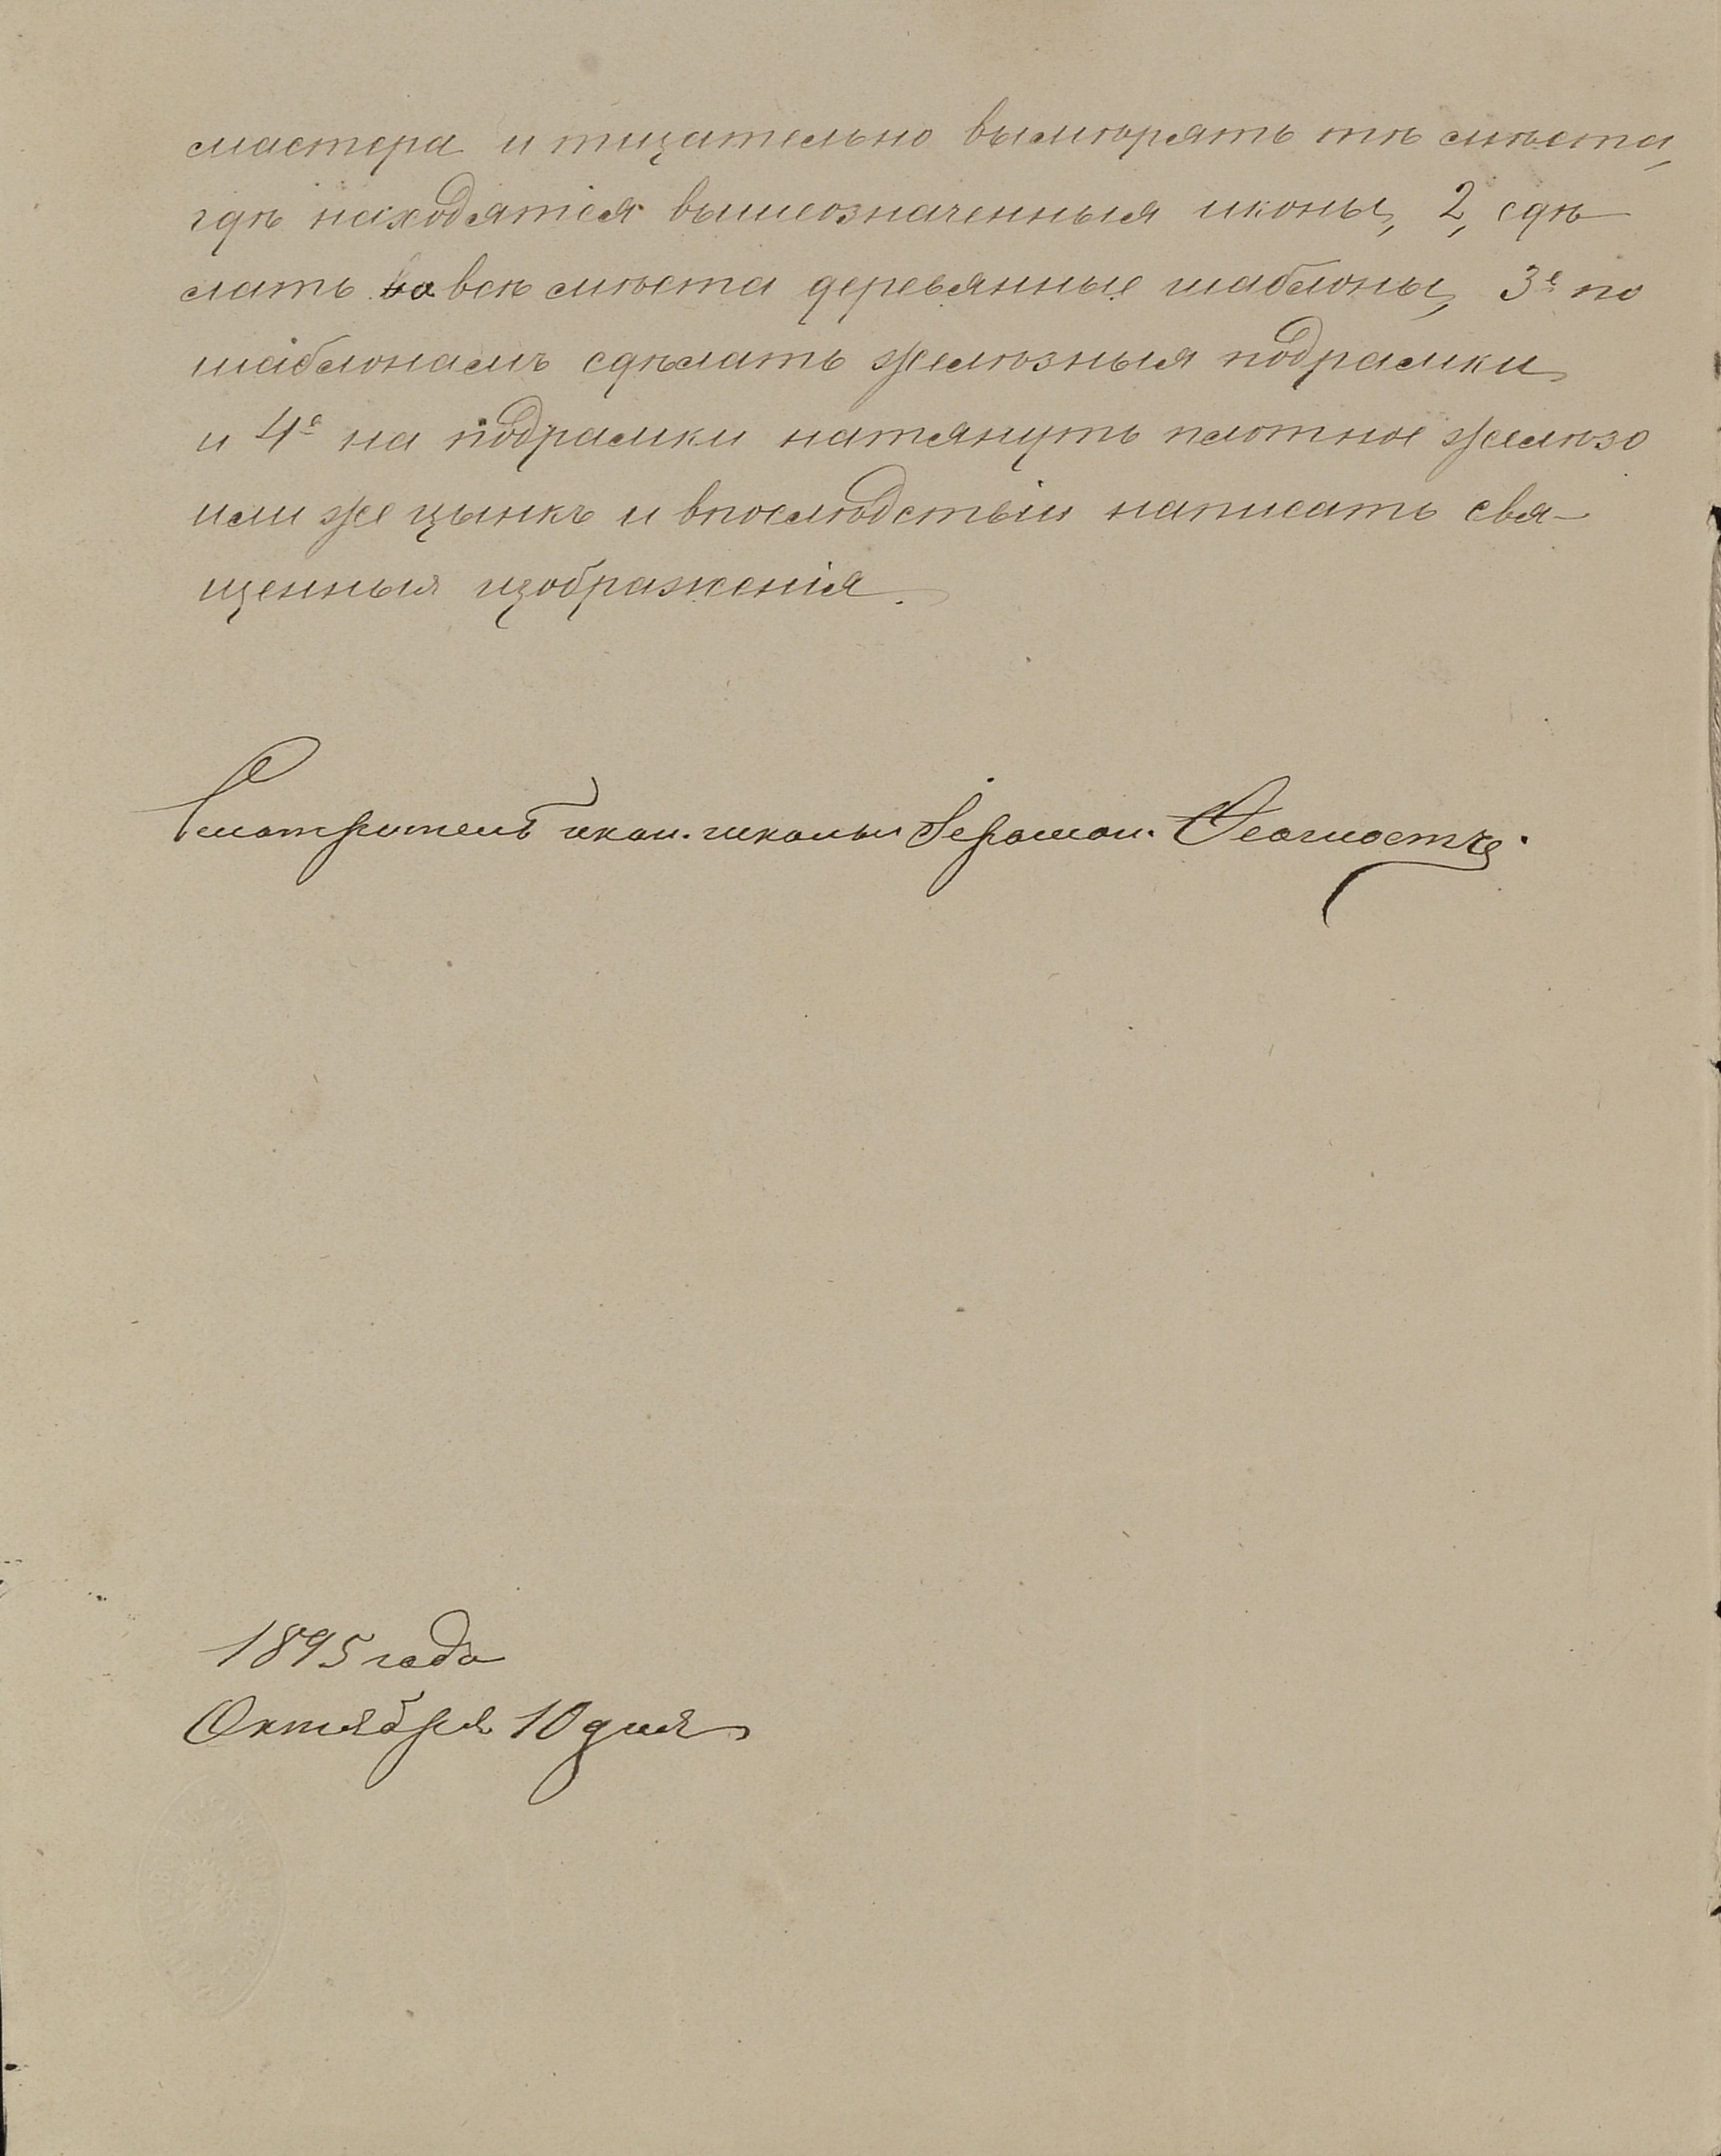 мастера и тщательно вымѣрять тѣ мѣста,
гдѣ находятся вышеозначенныя иконы, 2, сдѣ
лать на всѣ мѣста деревянные шаблоны, 3е по
шаблонамъ сдѣлать желѣзныя подрамки
и 4е на подрамки натянуть плотное желѣзо
или же цынкъ и впослѣдствіи написать свя-
щенныя изображенія.
Смотритель икон. школы Іеромон. Ѳеогностъ.
1895 года
Октября 10 дня